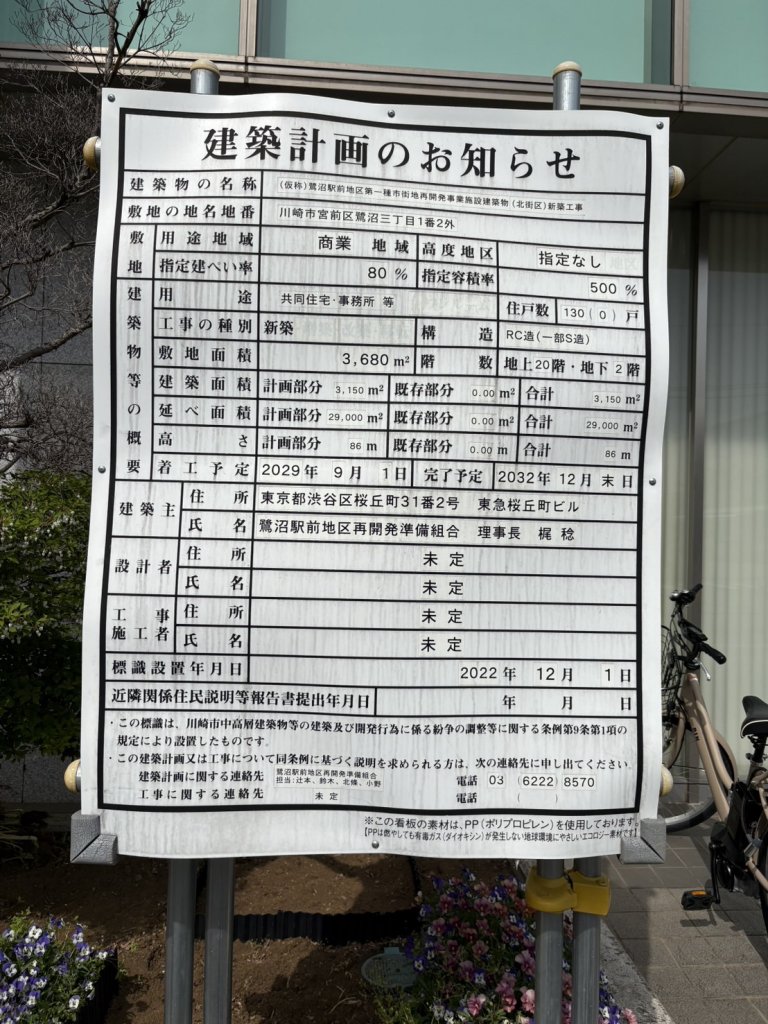 建築計画のお知らせ
建築物の名称 (仮称)鷺沼駅前地区第一種市街地再開発事業施設建築物(北街区)新築工事
敷地の地名地番 川崎市宮前区鷺沼三丁目1番2外
敷地 用途地域 商業 地域 高度地区 指定なし
指定建ぺい率 80 % 指定容積率 500 %
建築物等の概要 用途 共同住宅・事務所 等 住戸数 130 ( 0 ) 戸
工事の種別 新築 構造 RC造(一部S造)
敷地面積 3,680 m² 階数 地上20階・地下 2 階
建築面積 計画部分 3,150 m² 既存部分 0.00 m² 合計 3,150 m²
延べ面積 計画部分 29,000 m² 既存部分 0.00 m² 合計 29,000 m²
高さ 計画部分 86 m 既存部分 0.00 m 合計 86 m
着工予定 2029年 9月 1日 完了予定 2032年 12月 末日
建築主 住所 東京都渋谷区桜丘町31番2号 東急桜丘町ビル
氏名 鷺沼駅前地区再開発準備組合 理事長 梶 稔
設計者 住所 未定
氏名 未定
工事施工者 住所 未定
氏名 未定
標識設置年月日 2022年 12月 1日
近隣関係住民説明等報告書提出年月日 年 月 日
・この標識は、川崎市中高層建築物等の建築及び開発行為に係る紛争の調整等に関する条例第9条第1項の
規定により設置したものです。
・この建築計画又は工事について同条例に基づく説明を求められる方は、次の連絡先に申し出てください。
建築計画に関する連絡先 鷺沼駅前地区再開発準備組合 電話 03 (6222) 8570
担当:辻本、鈴木、北條、小野
工事に関する連絡先 未定 電話 ( )
※この看板の素材は、PP(ポリプロピレン)を使用しております。
【PPは燃やしても有毒ガス(ダイオキシン)が発生しない地球環境にやさしいエコロジー素材です】